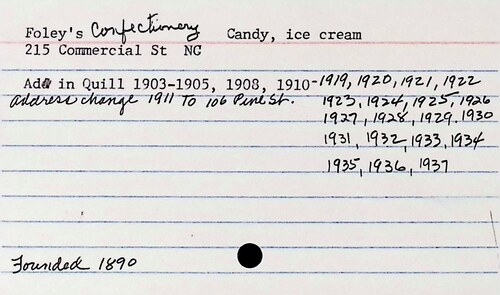 Foley's Confectionery Candy, ice cream
215 Commercial St NC
Ad in Quill 1903-1905, 1908, 1910-1919, 1920, 1921, 1922
Address change 1911 To 106 Pine St. 1923, 1924, 1925, 1926
1927, 1928, 1929, 1930
1931, 1932, 1933, 1934
1935, 1936, 1937
Founded 1890